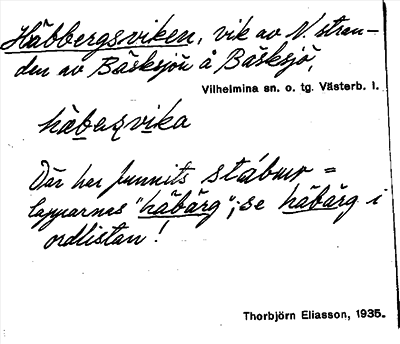 Häbbergsviken, vik av N. stran-
den av Bäsksjön å Bäsksjö,
Vilhelmina sn. o. tg. Västerb. l.
häbaqvika
Där har funnits stábur =
lapparnas "häbärg"; se häbärg i
ordlistan!
Thorbjörn Eliasson, 1935.